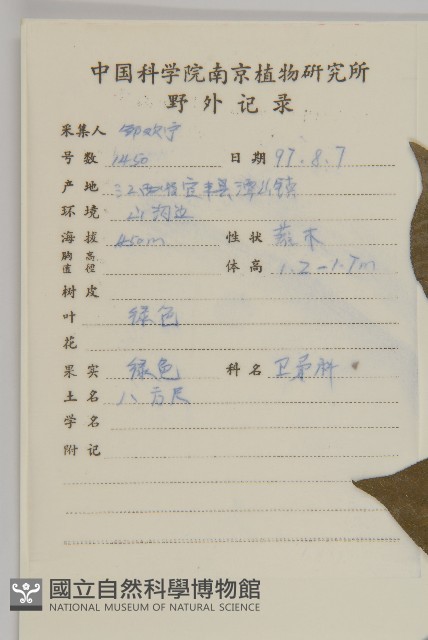 中国科学院南京植物研究所
野外记录
采集人
号数 1450 日期 97.8.7
产地 江西 宜丰县潭山镇
环境 山沟边
海拔 450m 性状 灌木
胸高直径 体高 1.2-1.7m
树皮
叶 绿色
花
果实 绿色 科名 卫矛科
土名 八方尺
学名
附记
國立自然科學博物館
NATIONAL MUSEUM OF NATURAL SCIENCE